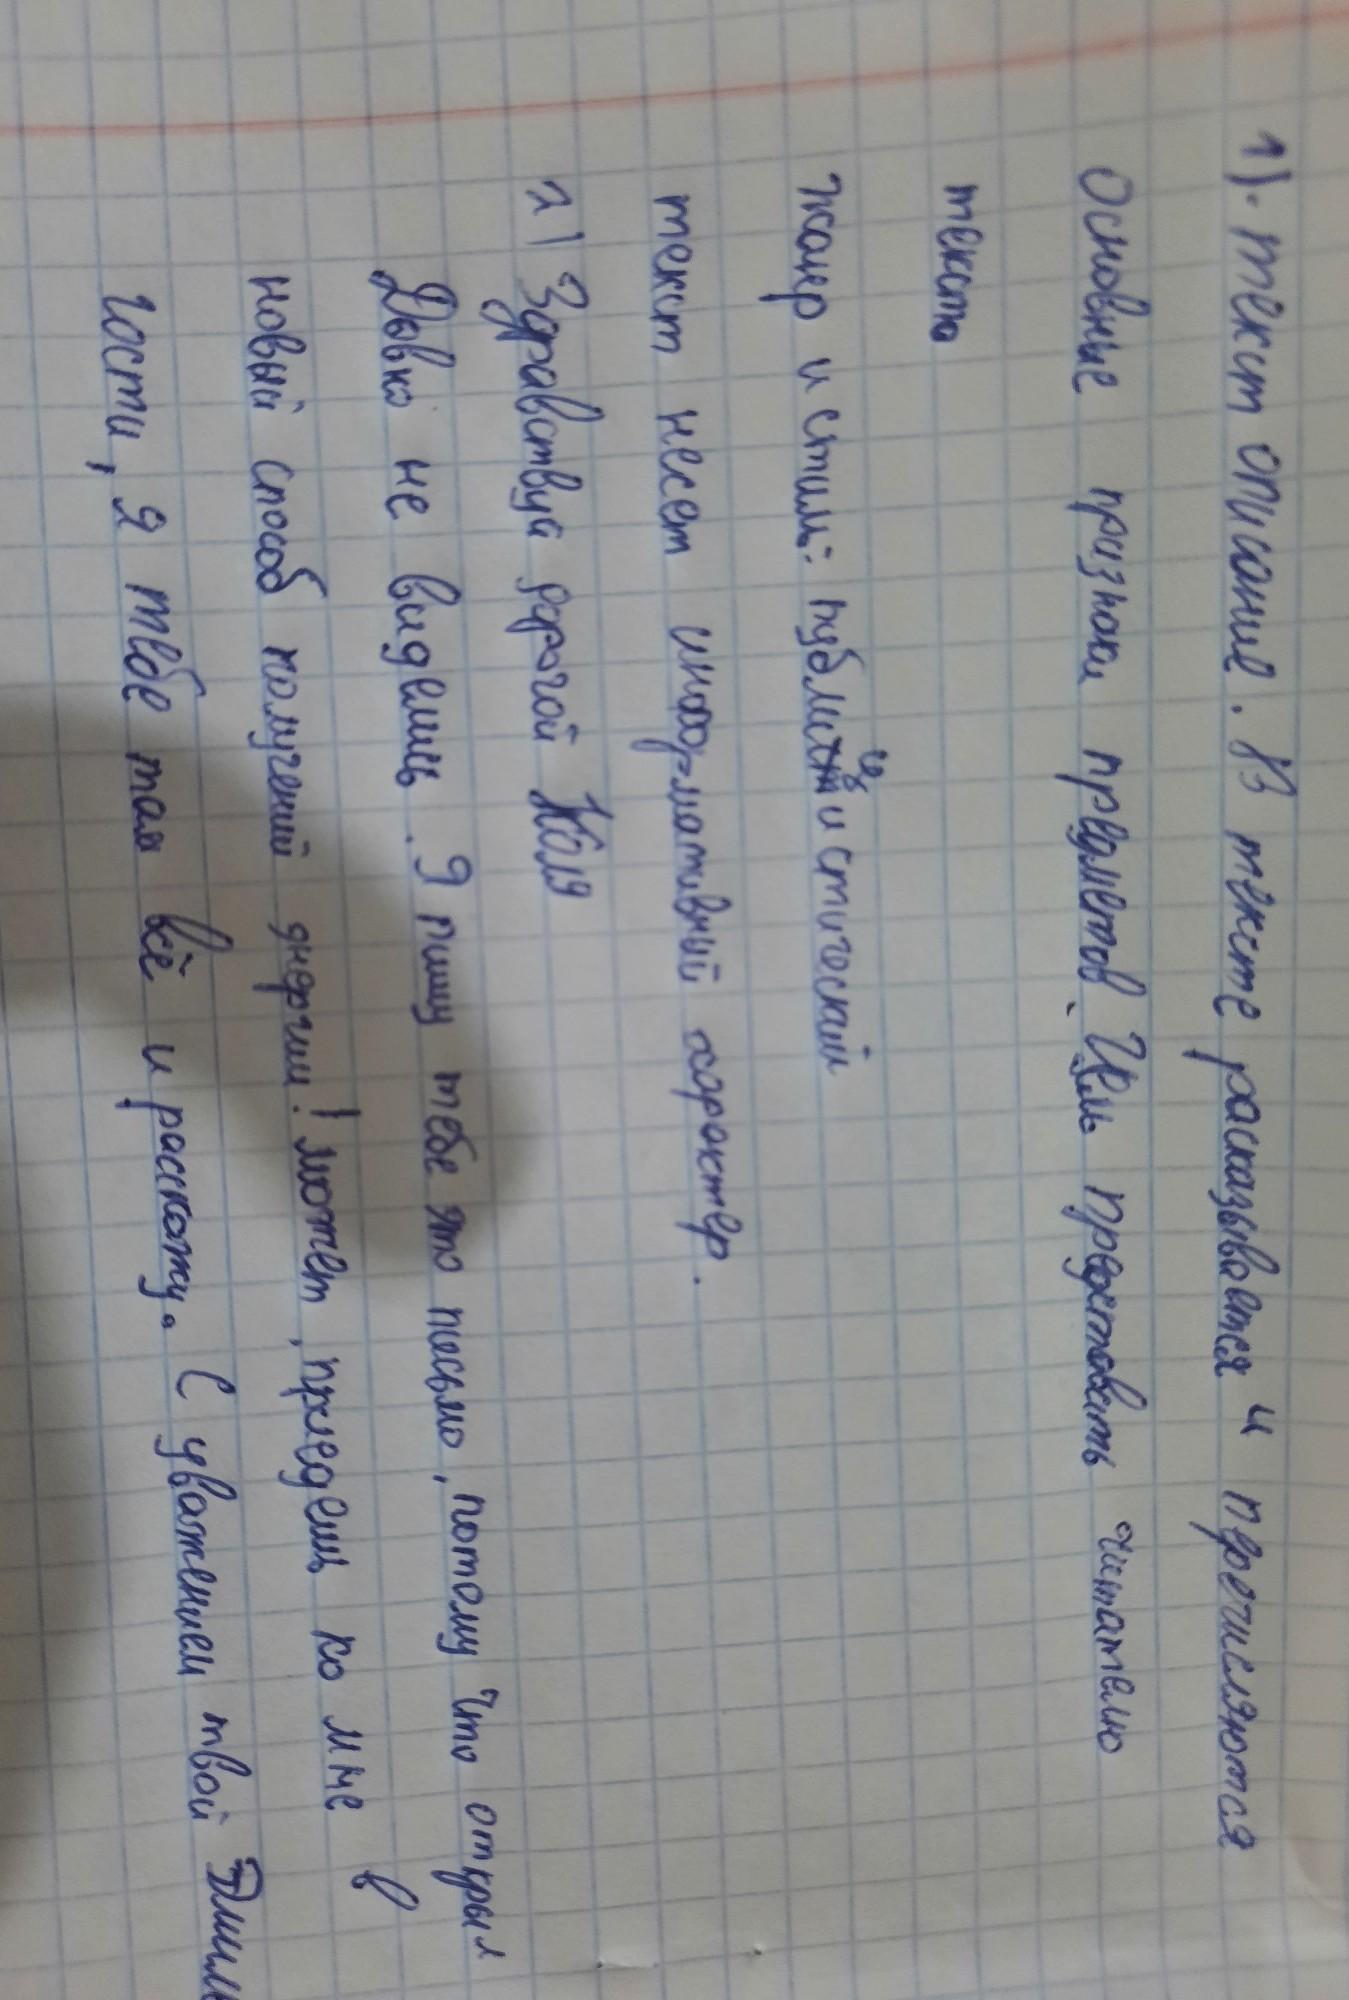 1). текст описание. В тексте расказывается и перечисляются
Основные признаки предметов. Цель предоставить читателю
текста
жанер и стиль: публицистический
текст несет информативный характер.
2) Здравствуй дорогой Коля
Давно не виделись. Я пишу тебе это письмо, потому что открыл
новый способ получений энергии! может, приедешь ко мне в
гости, я тебе там всё и расскажу. С уважением твой